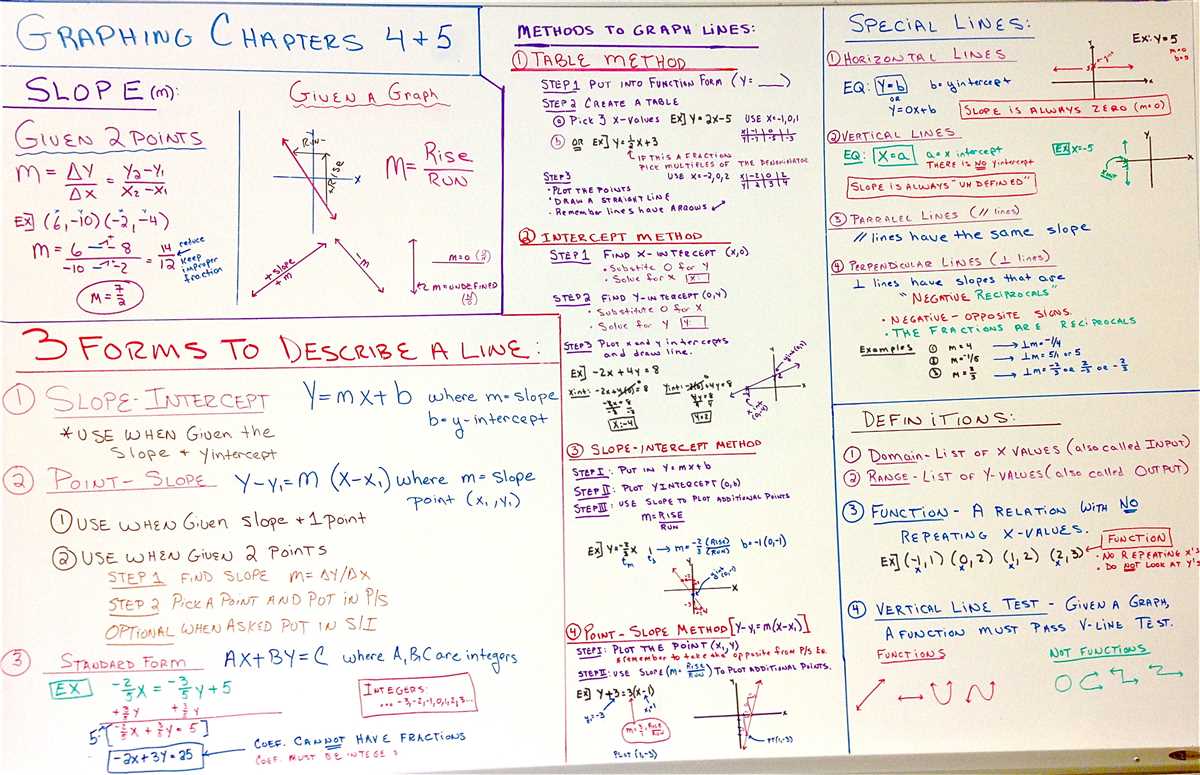 GRAPHING CHAPTERS 4+5
SLOPE (m):
GIVEN 2 POINTS
M = ΔY/ΔX = Y₂-Y₁/X₂-X₁
EX] (6,-10) (-2,-4)
M = 6 - - 8 / -10 - - 2 = 14/12
reduce
keep
improper
fraction
M = 7/2
GIVEN A GRAPH
RUN-
Y
X
M = Rise/RUN
+ slope
+ m
- m
m=0
m=UNDEFINED
3 FORMS TO DESCRIBE A LINE:
① SLOPE-INTERCEPT Y=mx+b where m=slope
b=y-intercept
*USE WHEN Given the
Slope + yintercept
② POINT-SLOPE Y-Y₁=M(X-X₁) where m=slope
point (x₁,y₁)
① USE WHEN Given slope + 1 point
② USE WHEN GIVEN 2 POINTS
STEP 1 FIND SLOPE M=ΔY/ΔX
STEP 2 PICK A POINT AND PUT IN P/S
OPTIONAL WHEN ASKED PUT IN S/I
③ STANDARD FORM AX+BY=C where A,B,C are integers
EX -2/5x = -3/5y+5
+3/5y +3/5y
5[-2/5x + 3/5y = 5]
-2x+3y=25
COEF. CANNOT HAVE FRACTIONS
COEF. MUST BE INTEGERS
INTEGERS:
... -3,-2,-1,0,1,2,3...
METHODS TO GRAPH LINES:
① TABLE METHOD
STEP 1 PUT INTO FUNCTION FORM (Y=___)
STEP 2 CREATE A TABLE
ⓐ Pick 3 x-values EX] Y=2x-5 USE X=-1,0,1
ⓑ OR EX] Y=½x+3
IF THIS A FRACTION
PICK MULTIPLES OF THE DENOMINATOR
USE X=-2,0,2
X|-2|0|2
Y|2|3|4
STEP 3
• PLOT THE POINTS
• DRAW A STRAIGHT LINE
• Remember lines have ARROWS
② INTERCEPT METHOD
STEP 1 FIND X-INTERCEPT (X,0)
• Substitute 0 for Y
• Solve for X X:
STEP 2 FIND Y-INTERCEPT (0,Y)
• Substitute 0 for X
• Solve for Y Y:
STEP 3 Plot x and y intercepts
and draw line.
EX] -2x+4y=8
Xint: -2x+4(0)=8
-2x=8
X:-4
Yint: -2(0)+4y=8
4y=8
Y=2
③ SLOPE-INTERCEPT METHOD
STEP I: PUT IN Y=mx+b
STEP II: PLOT YINTERCEPT (0,b)
STEP III: USE SLOPE TO PLOT ADDITIONAL POINTS
M=RISE/RUN
EX] Y=-2/3x-1 → m=-2/3 (RISE)/(RUN) b=-1 (0,-1)
④ POINT-SLOPE METHOD [Y-Y₁=m(X-X₁)]
STEP I: PLOT THE POINT (X₁,Y₁)
*remember to take the opposite from P/S Eq.
STEP II: USE SLOPE (M=RISE/RUN) TO PLOT ADDITIONAL POINTS.
EX] Y+3=3(X-1)
Y₁=-3
X₁=1
M=3/1 RISE/RUN
PLOT (1,-3)
PT(1,-3)
SPECIAL LINES:
① HORIZONTAL LINES
EQ: Y=b b=yintercept
OR
Y=0X+b
Ex: Y=5
m=0
b=5
SLOPE IS ALWAYS ZERO (M=0)
② VERTICAL LINES
EQ: X=a a=x intercept
THERE IS NO Yintercept
EX X=-5
SLOPE IS ALWAYS "UNDEFINED"
③ PARRALEL LINES (// lines)
// lines have the same slope
④ PERPENDICULAR LINES (⊥ lines)
⊥ lines have slopes that are
"NEGATIVE RECIPROCALS"
• NEGATIVE-OPPOSITE SIGNS.
• THE FRACTIONS ARE RECIPROCALS
Examples ① M=4 → ⊥m=-1/4
② M=-1/5 → ⊥m=5/1 or 5
③ M=3/2 → ⊥m=-2/3 or 2/-3 or -2/3
DEFINITIONS:
① Domain-LIST OF X VALUES (also called INPUT)
② RANGE-LIST OF Y-VALUES (also called OUTPUT)
③ FUNCTION-A RELATION WITH NO
REPEATING X-VALUES.
EX] (-1,1) (0,2) (1,2) (2,3)
FUNCTION
• NO REPEATING X's
• DO NOT LOOK AT Y's
④ VERTICAL LINE TEST-GIVEN A GRAPH,
A FUNCTION MUST PASS V-LINE TEST.
FUNCTIONS
NOT FUNCTIONS